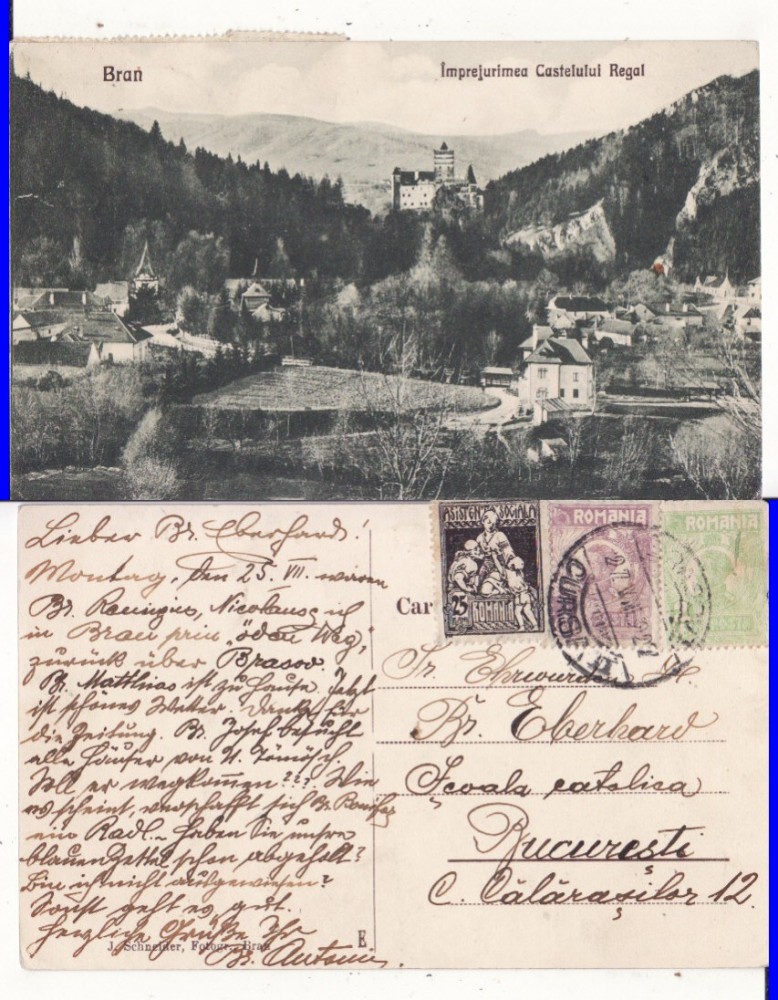 Bran
Împrejurimea Castelului Regal
Lieber Br. Eberhard!
Montag, den 25. VII. waren
Br. Remigius, Nicolaus, ich
in Bran "öden Weg",
zurück über Brasov.
Br. Matthias ist zu Hause. Jetzt
ist schönes Wetter. Danke für
die Zeitung. Br. Josef besucht
alle Häuser von U. Tömösch.
Soll er wegkommen??? Wie
es scheint, verschafft sich Br. Bonifaz
ein Radl. Haben Sie unsre
blauen Zettel schon abgeholt?
Bin ich nicht ausgewiesen?
Sonst geht es gut.
Herzliche Grüße Ihr
Br. Anton.
J. Schneider, Fotogr. Bran
E.
ASISTENȚA SOCIALA
25
ROMANIA
ROMANIA
ROMANIA
POSTA
Car
Sr. Ehrwürden H.
Br. Eberhard
Școala catolica
București
C. Călărașilor 12.